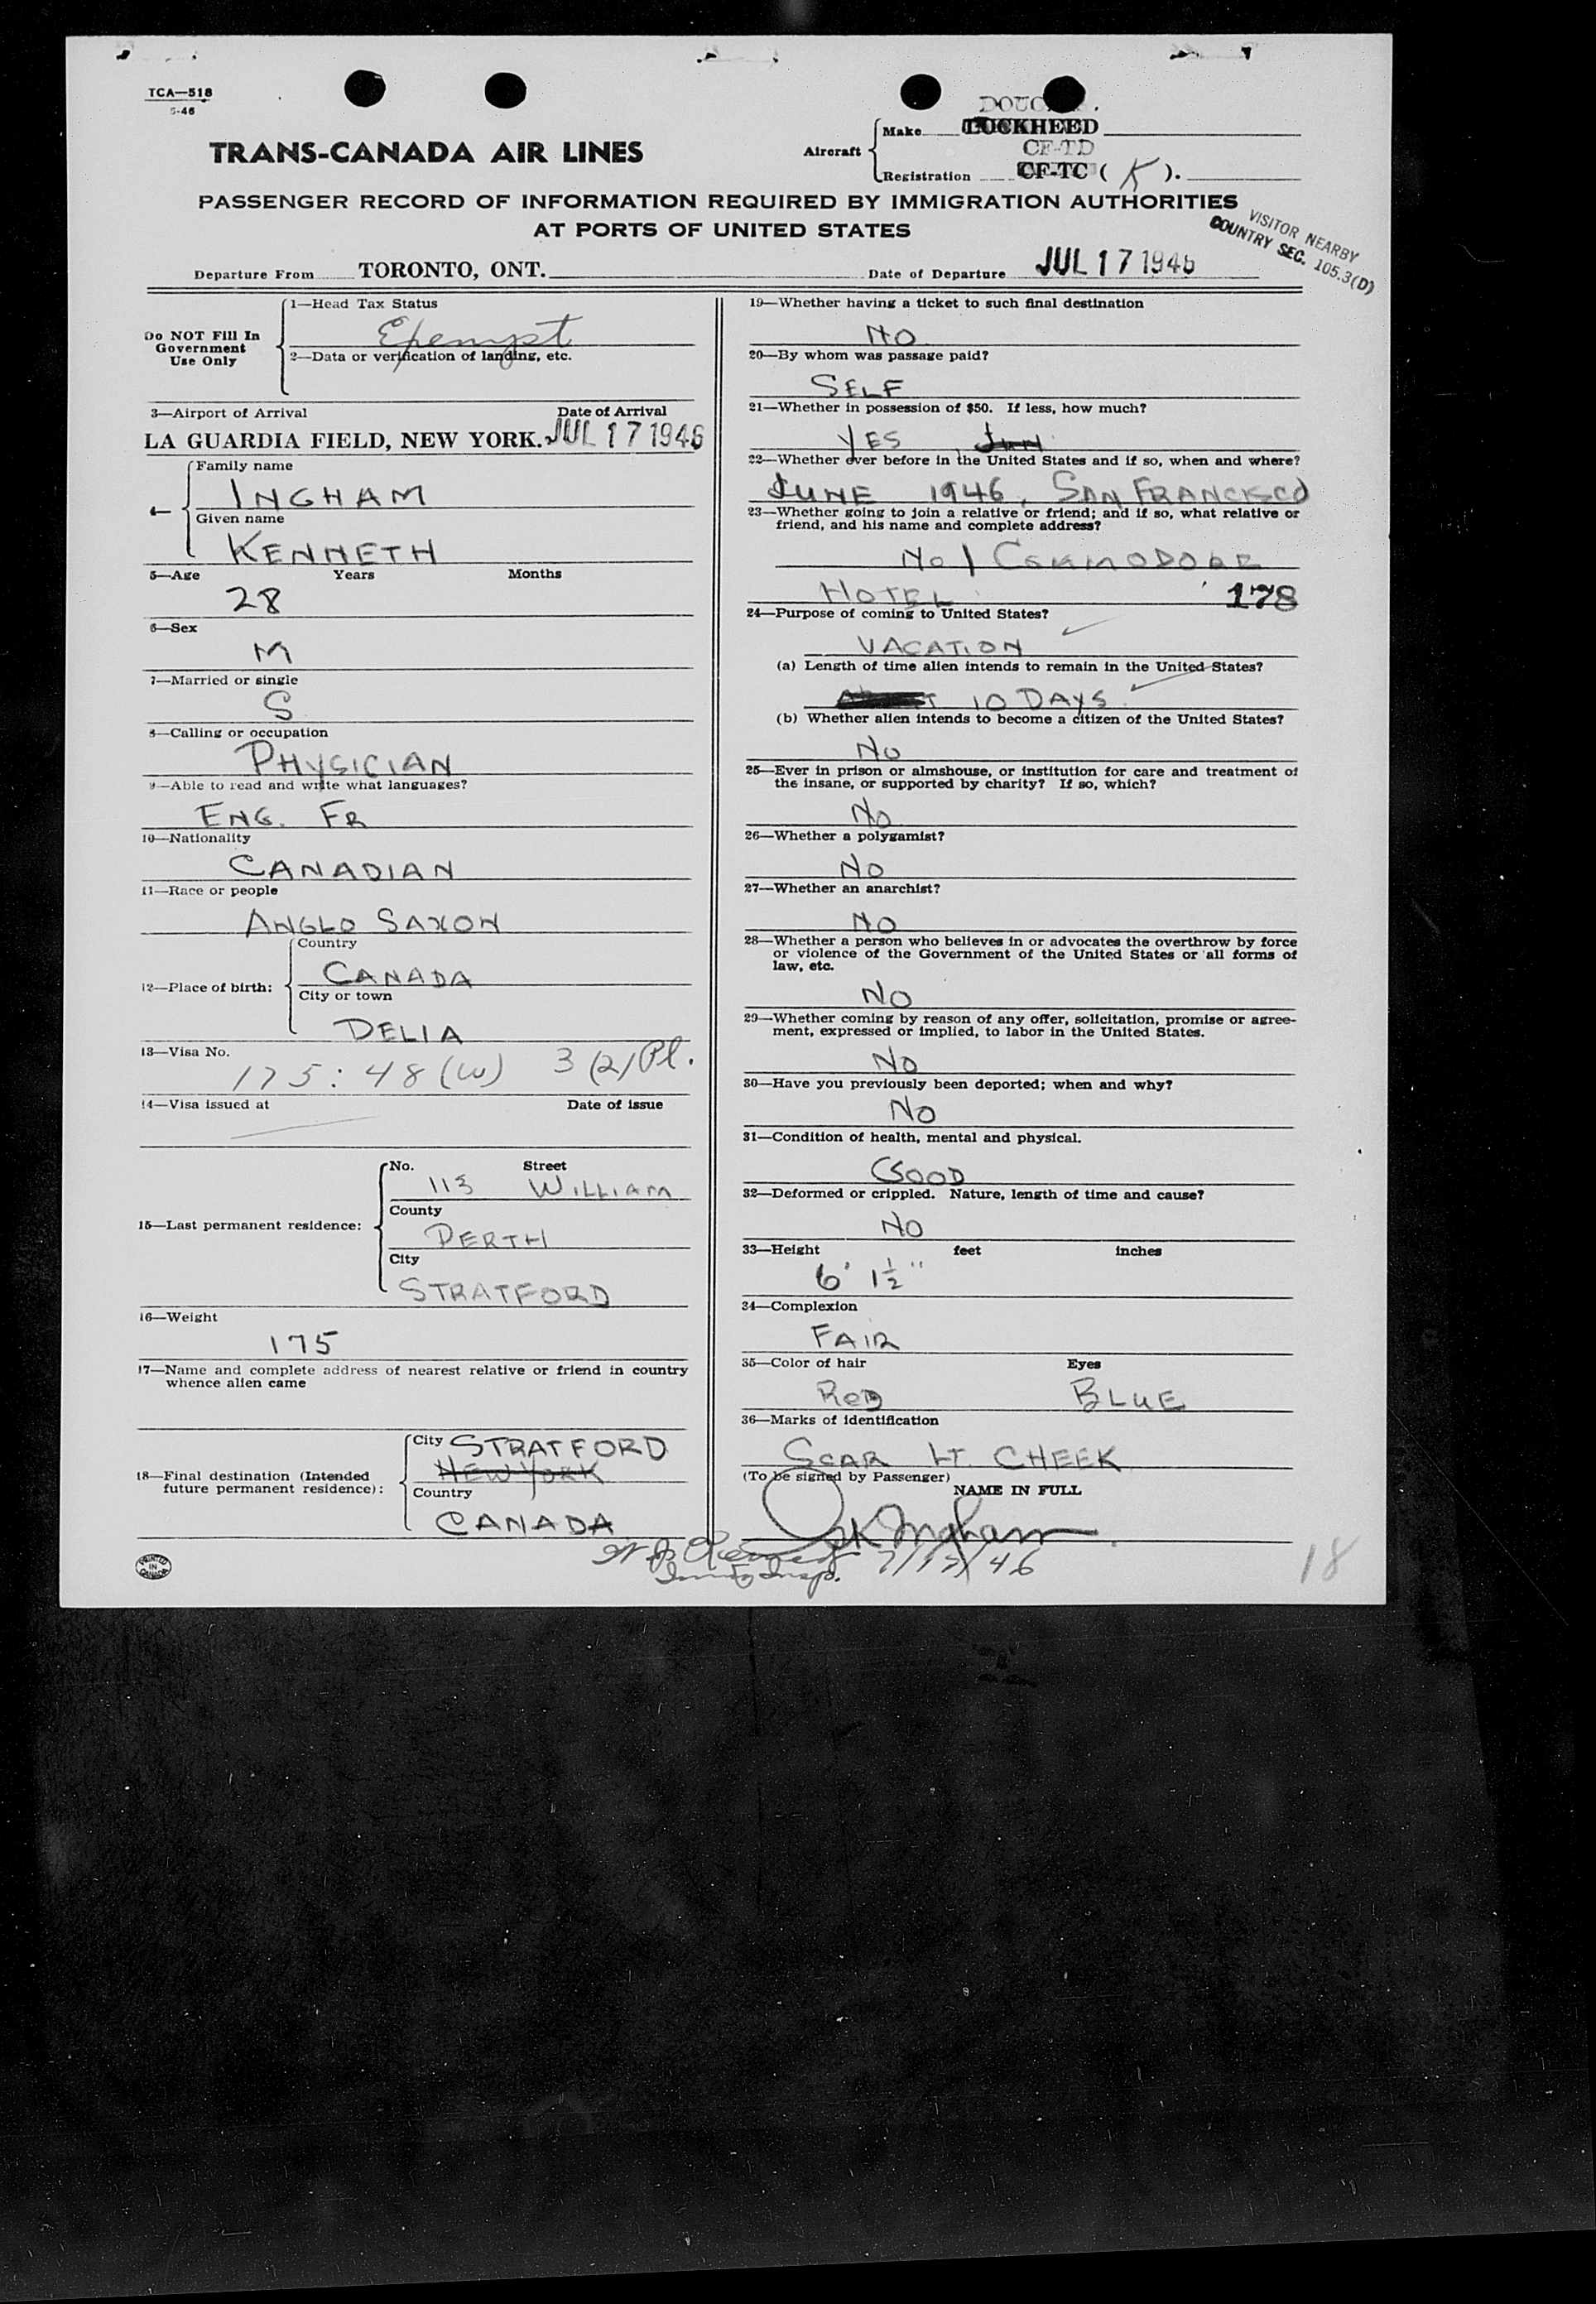 TCA—518
5-46
TRANS-CANADA AIR LINES
Aircraft
Make
LOCKHEED
CF-TD
Registration CF-TC ( K ).
PASSENGER RECORD OF INFORMATION REQUIRED BY IMMIGRATION AUTHORITIES
AT PORTS OF UNITED STATES
VISITOR NEARBY
COUNTRY SEC. 105.3(D)
Departure From TORONTO, ONT.
Date of Departure JUL 17 1946
Do NOT Fill In
Government
Use Only
1—Head Tax Status
Exempt
2—Data or verification of landing, etc.
3—Airport of Arrival Date of Arrival
LA GUARDIA FIELD, NEW YORK. JUL 17 1946
4—
Family name
INGHAM
Given name
KENNETH
5—Age Years Months
28
6—Sex
M
7—Married or single
S
8—Calling or occupation
PHYSICIAN
9—Able to read and write what languages?
ENG. FR
10—Nationality
CANADIAN
11—Race or people
ANGLO SAXON
12—Place of birth:
Country
CANADA
City or town
DELIA
13—Visa No.
175:48(W) 3(2) Pl.
14—Visa issued at Date of issue
15—Last permanent residence:
No. Street
113 WILLIAM
County
PERTH
City
STRATFORD
16—Weight
175
17—Name and complete address of nearest relative or friend in country
whence alien came
18—Final destination (Intended
future permanent residence):
City STRATFORD
NEW YORK
Country
CANADA
PRINTED
IN
CANADA
19—Whether having a ticket to such final destination
NO
20—By whom was passage paid?
SELF
21—Whether in possession of $50. If less, how much?
YES JUN
22—Whether ever before in the United States and if so, when and where?
JUNE 1946, SAN FRANCISCO
23—Whether going to join a relative or friend; and if so, what relative or
friend, and his name and complete address?
NO / COMMODORE
HOTEL 178
24—Purpose of coming to United States?
VACATION
(a) Length of time alien intends to remain in the United States?
10 DAYS
(b) Whether alien intends to become a citizen of the United States?
NO
25—Ever in prison or almshouse, or institution for care and treatment of
the insane, or supported by charity? If so, which?
NO
26—Whether a polygamist?
NO
27—Whether an anarchist?
NO
28—Whether a person who believes in or advocates the overthrow by force
or violence of the Government of the United States or all forms of
law, etc.
NO
29—Whether coming by reason of any offer, solicitation, promise or agree-
ment, expressed or implied, to labor in the United States.
NO
30—Have you previously been deported; when and why?
NO
31—Condition of health, mental and physical.
GOOD
32—Deformed or crippled. Nature, length of time and cause?
NO
33—Height feet inches
6' 1½"
34—Complexion
FAIR
35—Color of hair Eyes
RED BLUE
36—Marks of identification
SCAR LT. CHEEK
(To be signed by Passenger)
NAME IN FULL
K Ingham
7/17/46
Insp.
18